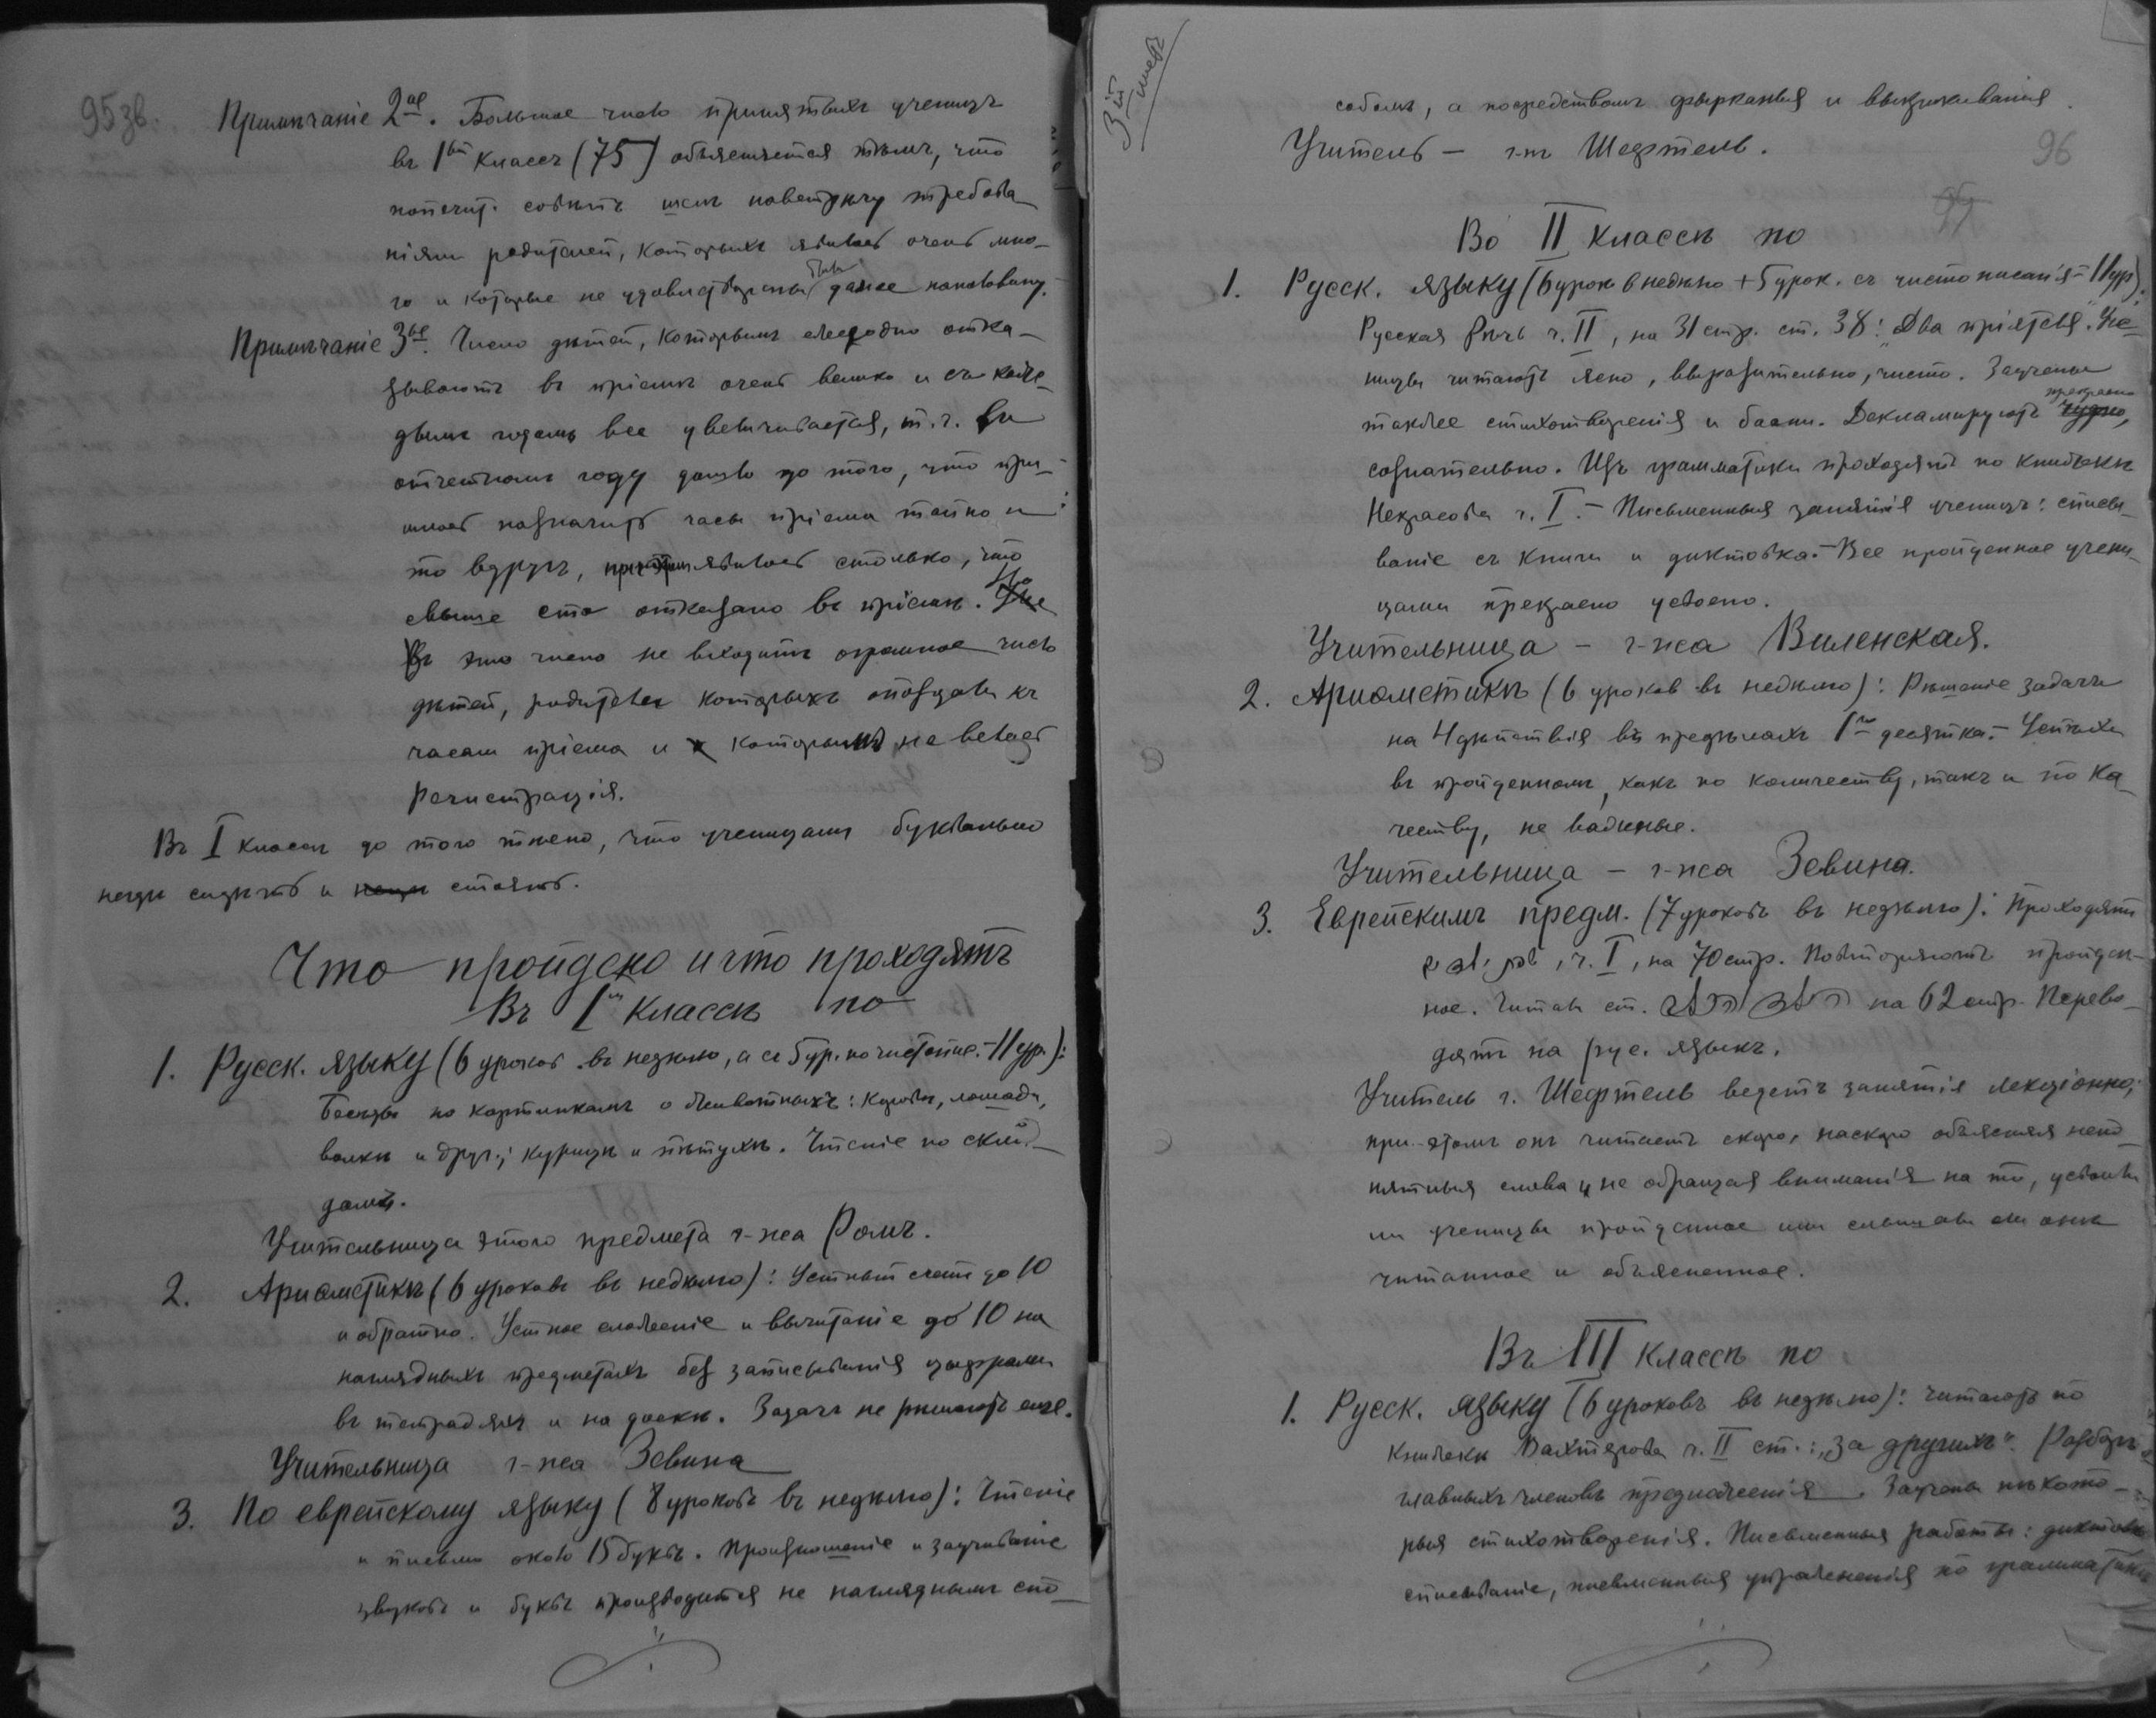 95 зв.
Примѣчаніе 2ое. Большое число принятыхъ ученицъ
въ 1ый классъ (75) объясняется тѣмъ, что
попечит. совѣтъ шелъ навстрѣчу требова
ніямъ родителей, которыхъ явилось очень мно-
го и которые не удовлетворены были далее наполовину.
Примѣчаніе 3ье. Число дѣтей, которымъ ежегодно отка-
зываютъ въ пріемѣ очень велико и съ каж-
дымъ годомъ все увеличивается, т. ч. въ
отчетномъ году дошло до того, что при-
шлось назначить часы пріема тайно и
то вдругъ, явилось столько, что
свыше ста отказано въ пріемѣ. Но
въ это число не входитъ огромное число
дѣтей, родители которыхъ опоздали къ
часамъ пріема и которымъ не велась
регистрація.
Въ I классѣ до того тѣсно, что ученицамъ буквально
негдѣ сидѣть и негдѣ стоять.
Что пройдено и что проходятъ
Въ Iм классѣ по
1. Русск. языку (6 уроков. въ недѣлю, а съ 5 ур. по чистопис. - 11 ур.):
Бесѣды по картинкамъ о животныхъ: коровѣ, лошади,
волкѣ и друг.; курицѣ и пѣтухѣ. Чтеніе по скла-
дамъ.
Учительница этого предмета г-жа Ромъ.
2. Ариѳметикѣ (6 уроковъ въ недѣлю): Устный счетъ до 10
и обратно. Устное сложеніе и вычитаніе до 10 на
наглядныхъ предметахъ без записыванія цыфрами
въ тетрадяхъ и на доскѣ. Задачъ не рѣшаютъ еще.
Учительница г-жа Зевина
3. По еврейскому языку (8 уроковъ въ недѣлю): Чтеніе
и письмо около 15 буквъ. Произношеніе и заучиваніе
звуковъ и буквъ производится не нагляднымъ спо-
3ій листъ
собомъ, а посредствомъ фырканья и выкрикиванія.
Учитель — г-нъ Шефтель.
96
Во II классѣ по
1. Русск. языку (6 урок. в недѣлю + 5 урок. съ чистописанія = 11 ур).
Русская рѣчь ч. II, на 31 стр. ст. 38: „Два пріятеля". Уче-
ницы читаютъ ясно, выразительно, чисто. Заучены
также стихотворенія и басни. Декламируютъ чудно, прекрасно
сознательно. Изъ грамматики проходятъ по книжкѣ
Некрасова ч. I. — Письменныя занятія ученицъ: списы-
ваніе съ книги и диктовка. — Все пройденное учени-
цами прекрасно усвоено.
Учительница — г-жа Виленская.
2. Ариѳметикѣ (6 уроков въ недѣлю): Рѣшеніе задачъ
на 4 дѣйствія въ предѣлахъ 1го десятка. — Успѣхи
въ пройденномъ, какъ по количеству, такъ и по ка-
честву, не важные.
Учительница — г-жа Зевина.
3. Еврейскимъ предм. (7 уроковъ въ недѣлю): Проходятъ
, ч. I, на 70 стр. Повторяютъ пройден-
ное. Читали ст. на 62 стр. Перево-
дятъ на рус. языкъ.
Учитель г. Шефтель ведетъ занятія лекціонно;
при этомъ онъ читаетъ скоро, наскоро объясняя непо-
нятныя слова и не обращая вниманія на то, усвоили
ли ученицы пройденное или слышали ли они
читанное и объясненное.
Въ III классѣ по
1. Русск. языку (6 уроковъ въ недѣлю): читаютъ по
книжкѣ Вахтерова ч. II ст.: „За другихъ". Разборъ
главныхъ членовъ предложенія. Заучены нѣкото-
рыя стихотворенія. Письменныя работы: диктовка
списываніе, письменныя упражненія по грамматикѣ